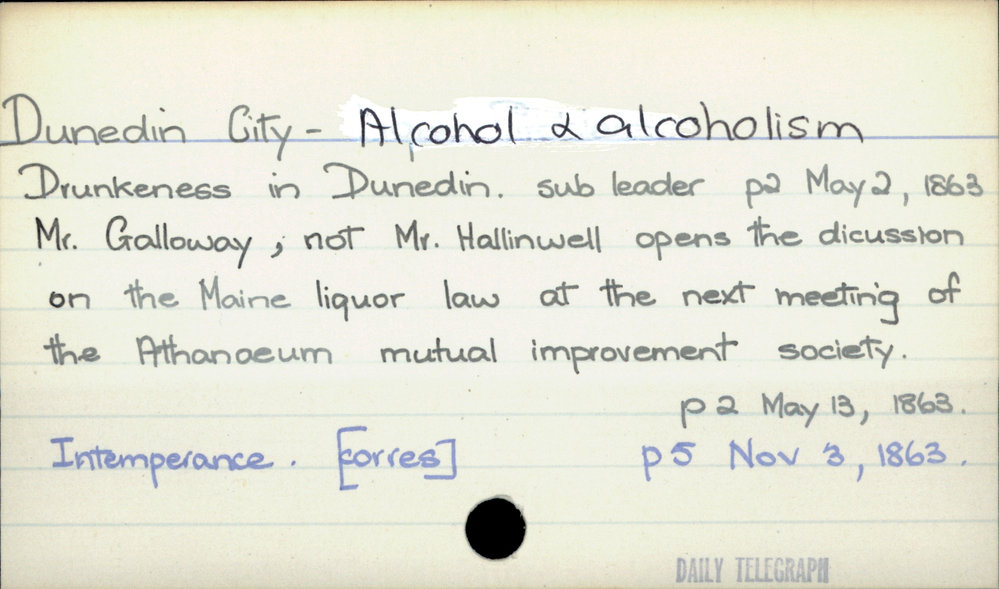 Dunedin City - Alcohol & alcoholism
Drunkeness in Dunedin. sub leader p2 May 2, 1863
Mr. Galloway, not Mr. Hallinwell opens the dicussion
on the Maine liquor law at the next meeting of
the Athanaeum mutual improvement society.
p 2 May 13, 1863.
Intemperance. [corres] p 5 Nov 3, 1863.
DAILY TELEGRAPH